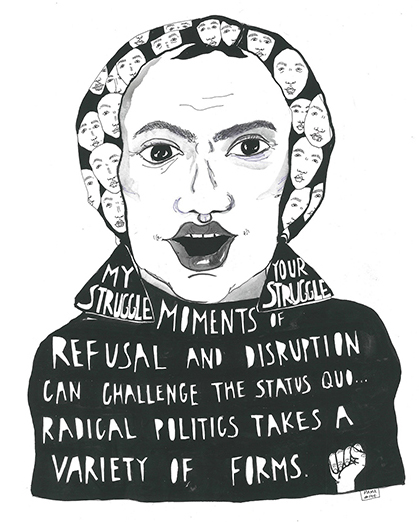 MY
STRUGGLE
YOUR
STRUGGLE
MOMENTS OF
REFUSAL AND DISRUPTION
CAN CHALLENGE THE STATUS QUO...
RADICAL POLITICS TAKES A
VARIETY OF FORMS.